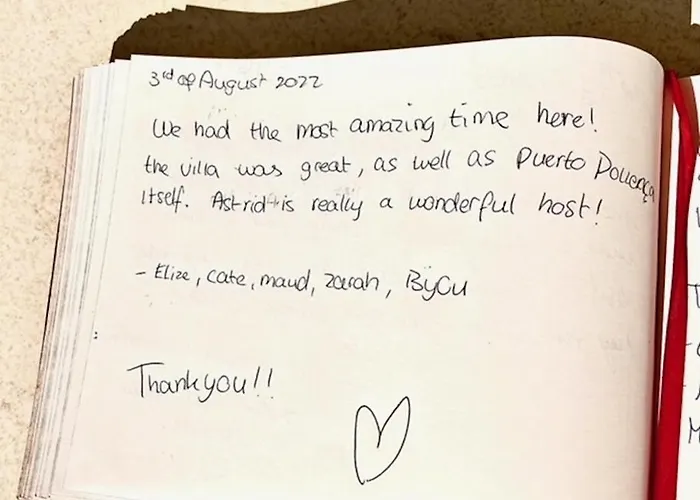 3rd of August 2022
We had the most amazing time here!
the villa was great, as well as Puerto
Itself. Astrid is really a wonderful host!
- Elize, cate, maud, zarah, Bycu
Thankyou!!